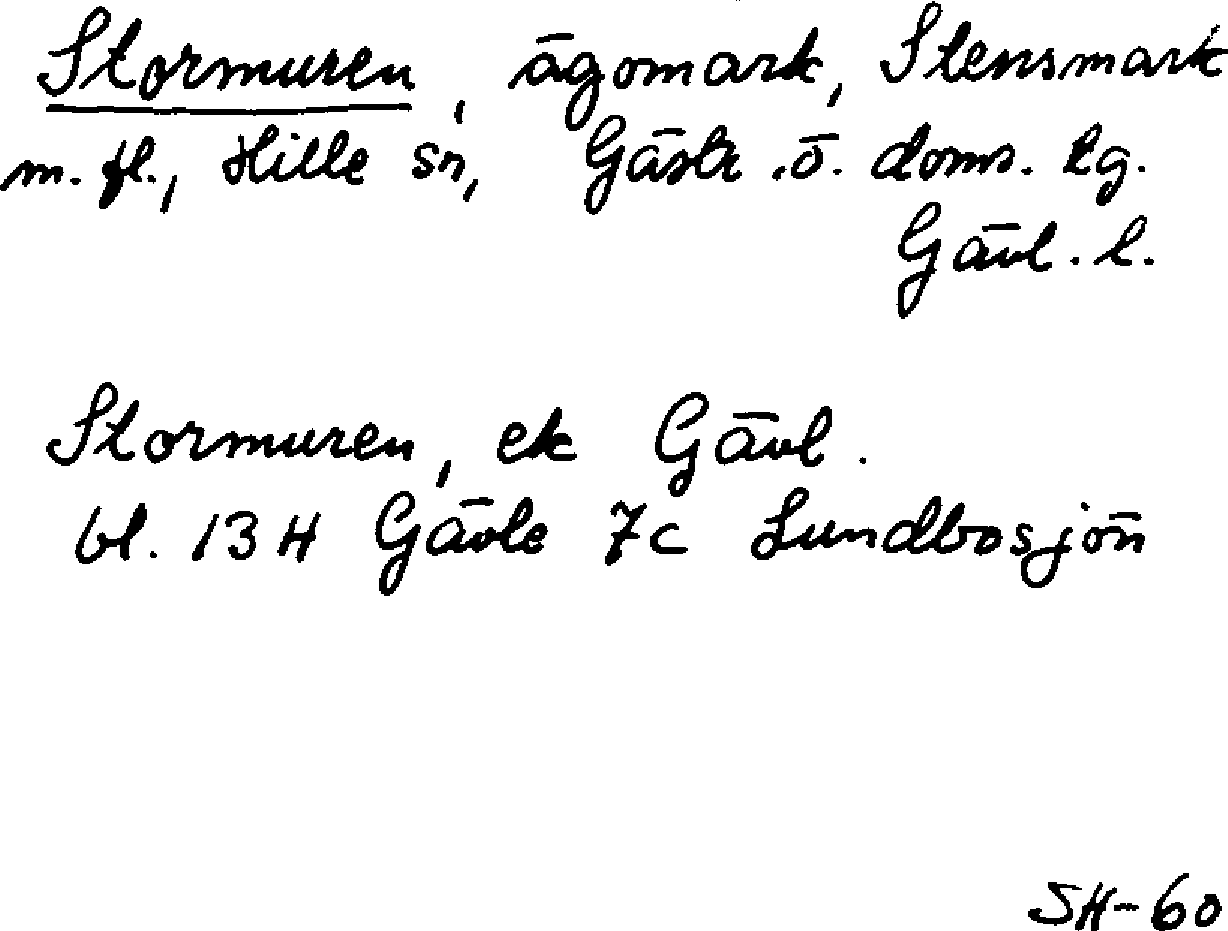 Stormuren, ägomark, Stensmark
m.fl., Hille sn, Gästr. ö. doms. lg.
Gävl. l.
Stormuren, ek Gävl.
bl. 13 H Gävle 7c Lundbosjön
SH-60